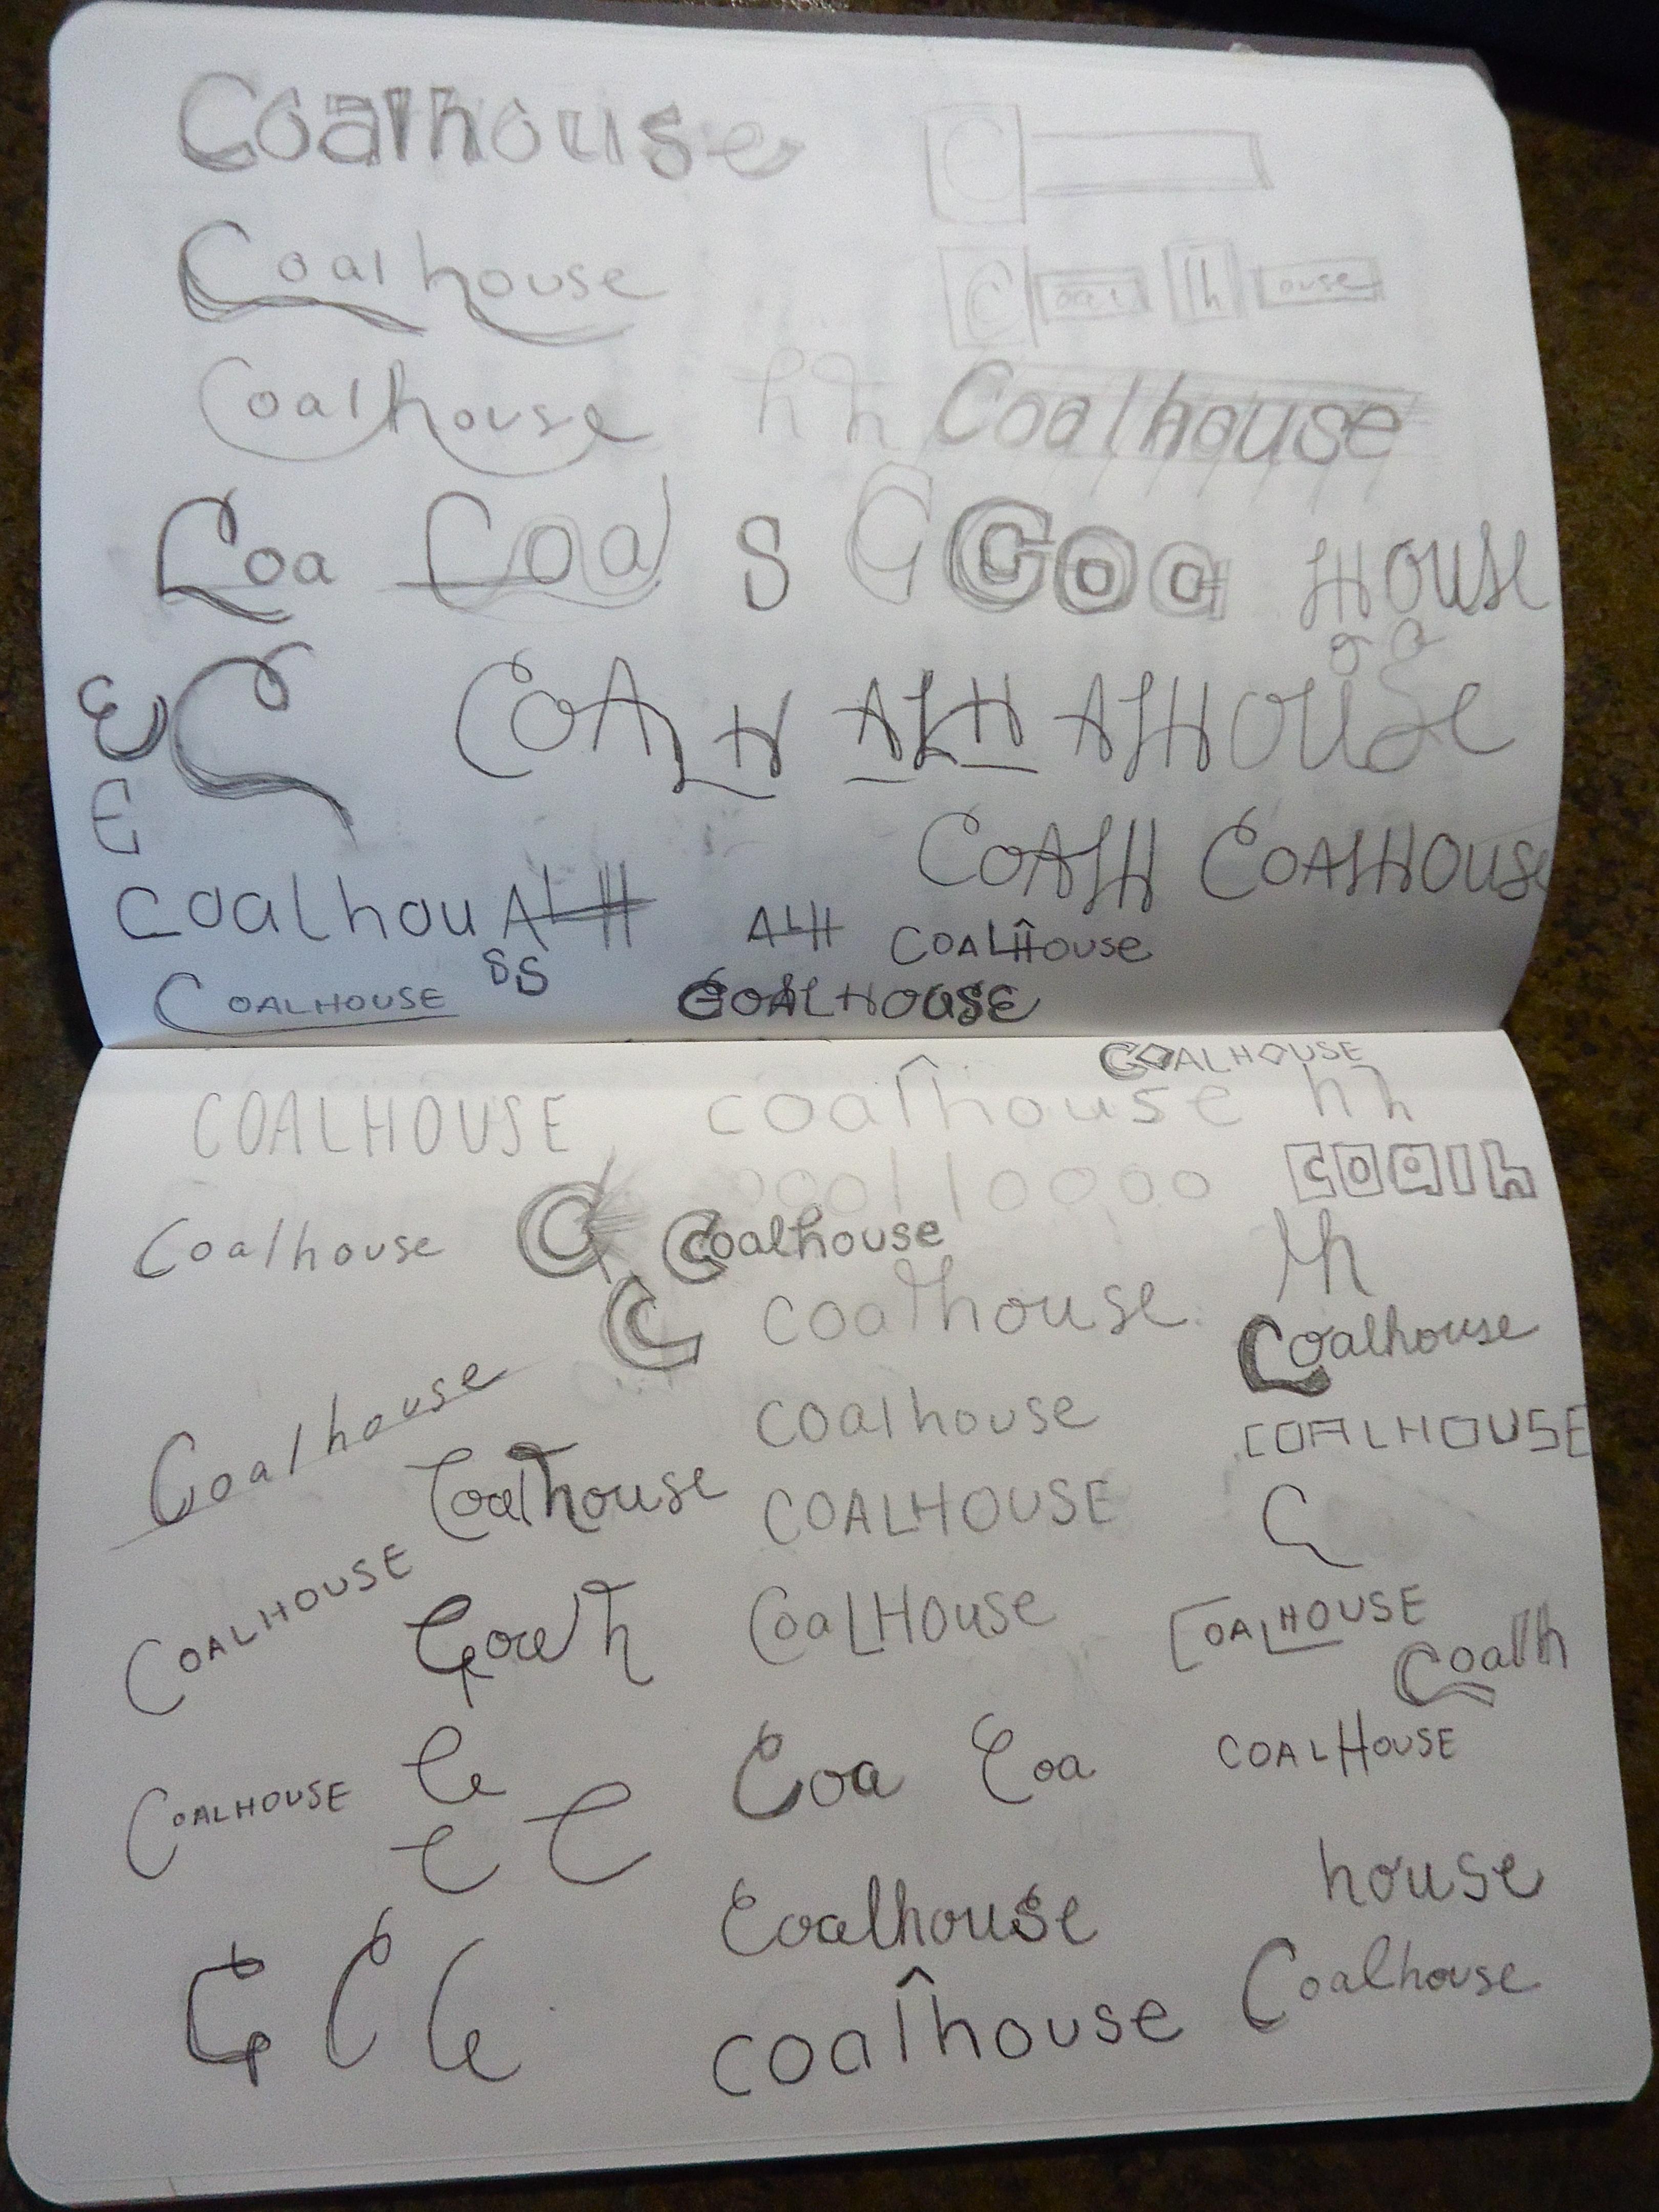 Coalhouse C
Coalhouse C oal lh ouse
Coalhouse h h Coalhouse
Coa Coal S C Coa HOUSE
C COAL H ALH ALHOUSE
E COALH COALHOUSE
coalhou ALH ALH COALHOUSE
SS
COALHOUSE COALHOUSE
COALHOUSE
COALHOUSE coalhouse h h
coalh
Coalhouse C Coalhouse lh
C coalhouse Coalhouse
Coalhouse coalhouse COALHOUSE
Coalhouse COALHOUSE C
COALHOUSE Coalh CoaLHouse COALHOUSE
Coalh
C Coa Coa COALHOUSE
COALHOUSE C C
house
Coalhouse
C C C coalhouse Coalhouse